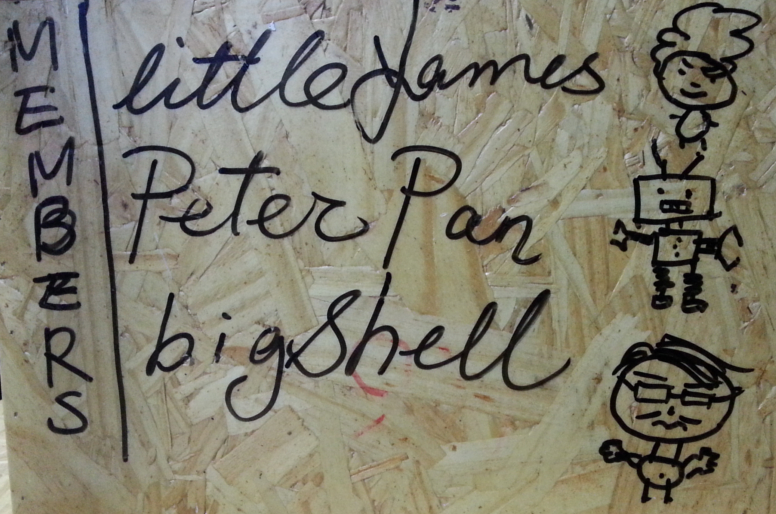 MEMBERS
little James
Peter Pan
bigshell